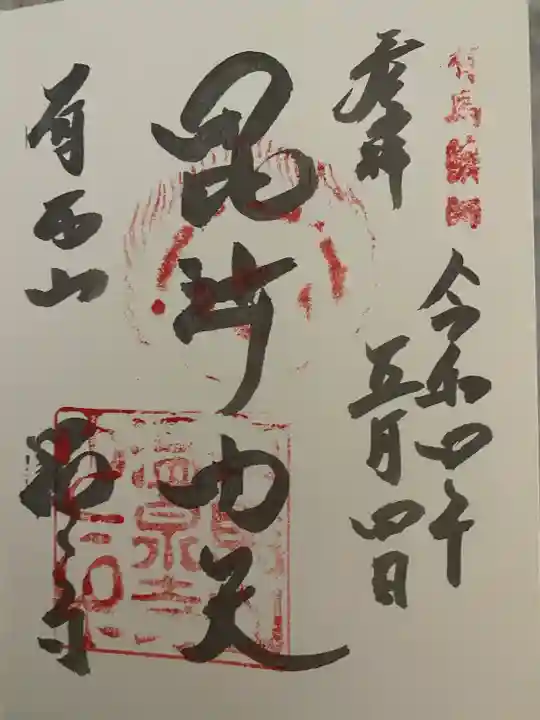 有馬薬師
奉拝
令和四年
五月四日
毘沙門天
有馬山
温泉寺